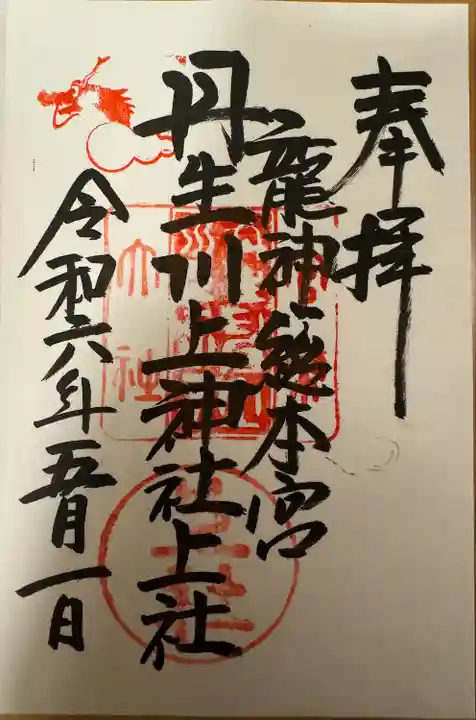 奉拝
龍神總本宮
丹生川上神社上社
令和六年五月一日